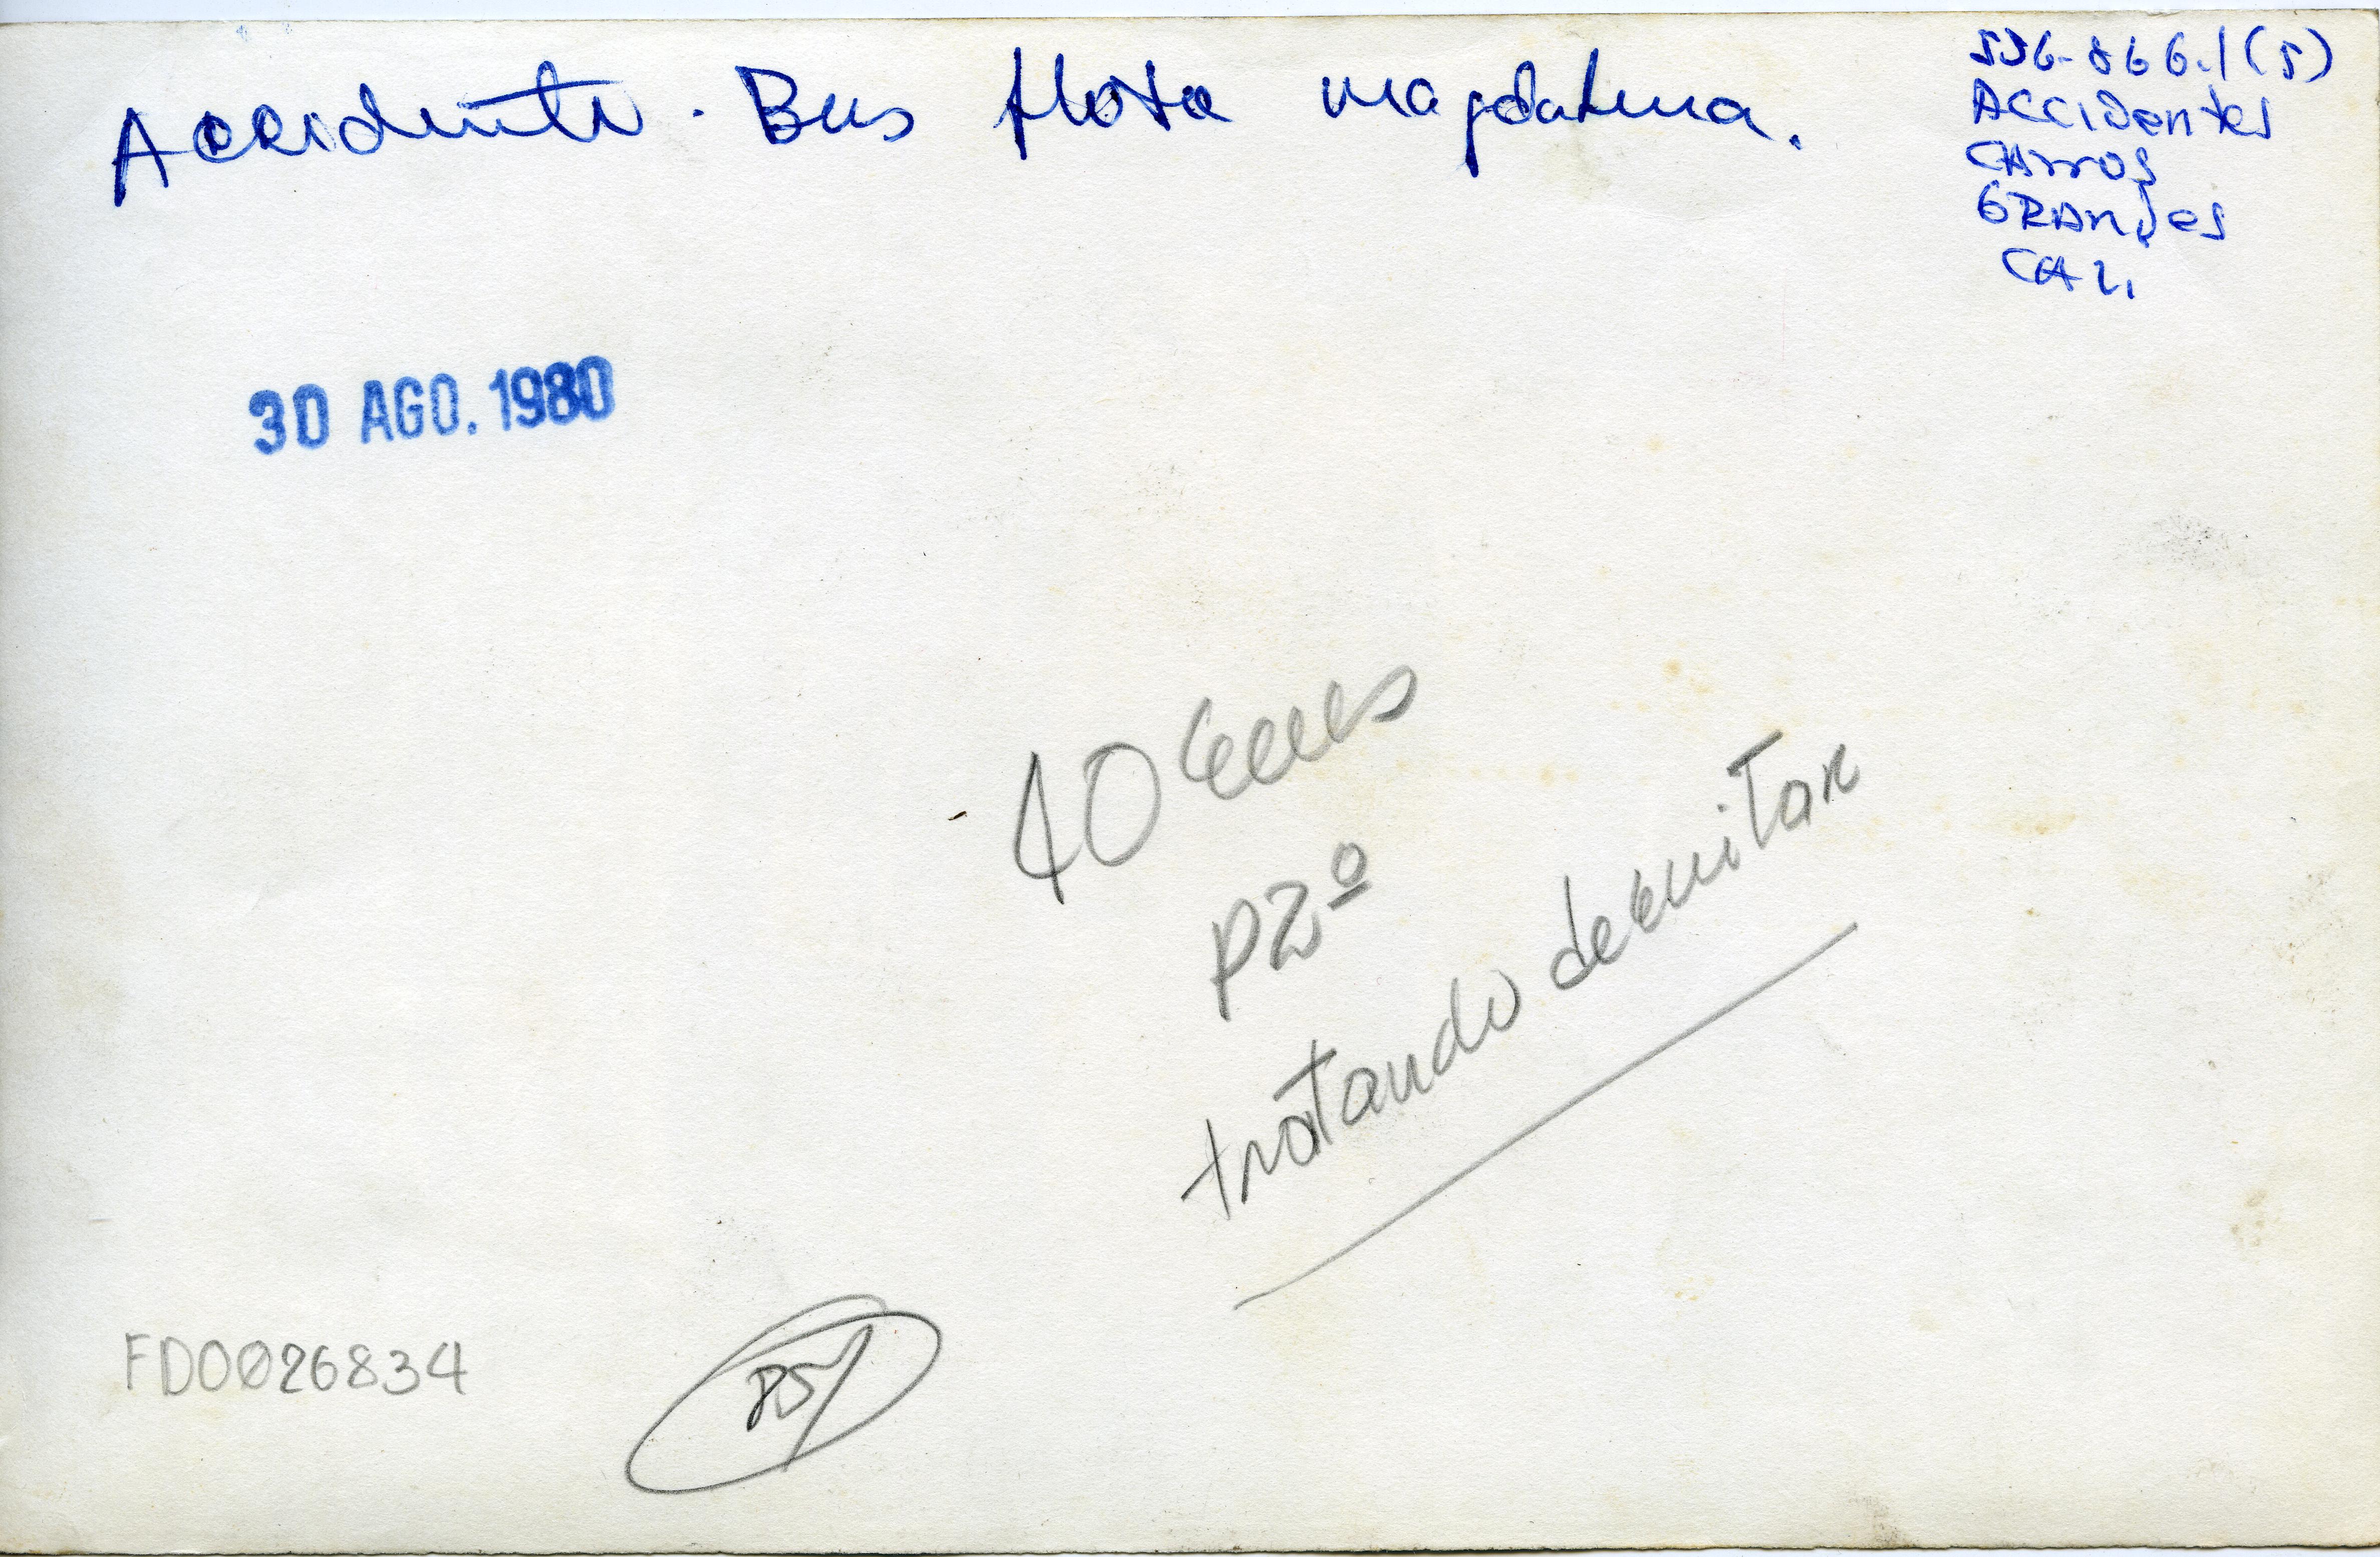 Accidente. Bus flota magdalena.
536-866.1(5)
Accidentes
Carros
Grandes
Cali
30 AGO. 1980
40 ems
P2º
tratando de evitar
FD0026834